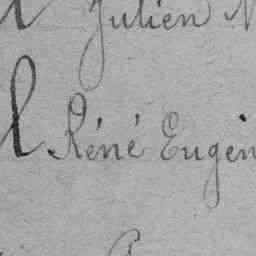 Julien
l Réné Eugen